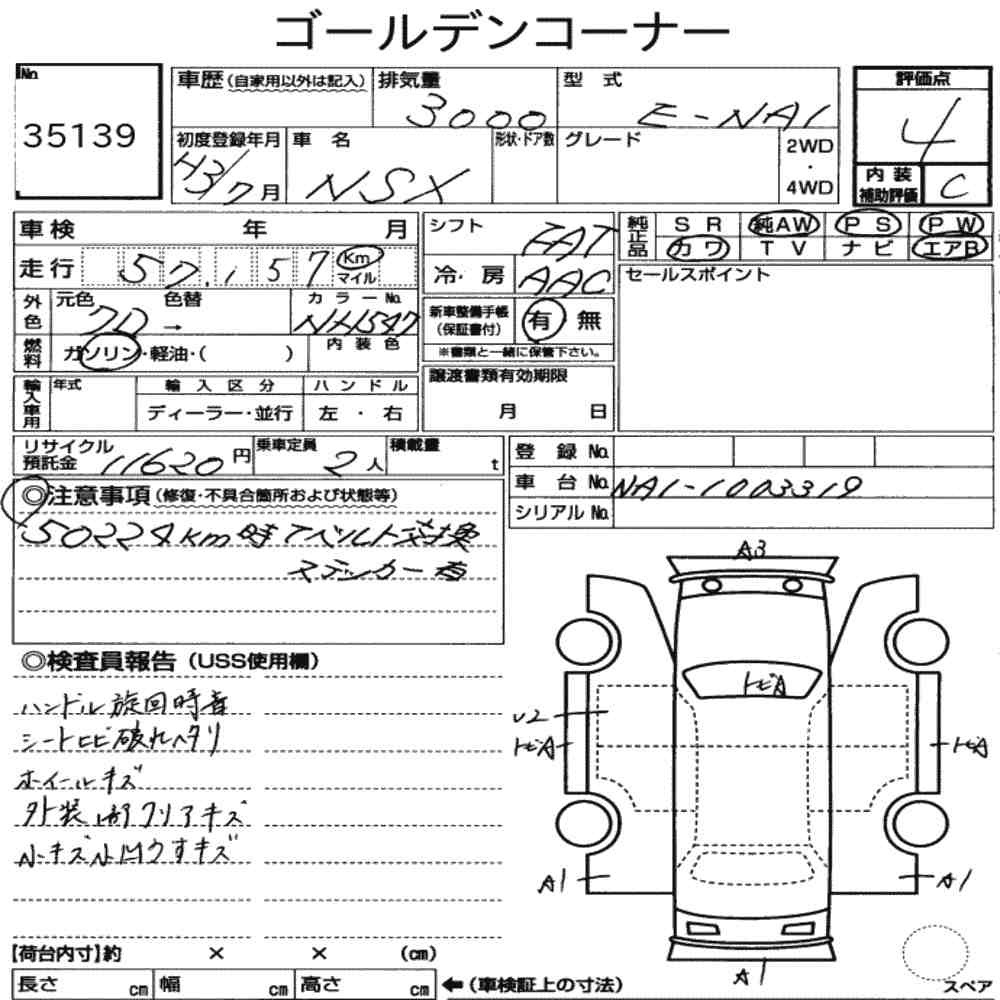 ゴールデンコーナー
No.
35139
車歴(自家用以外は記入)
排気量
3000
型 式
E-NA1
評価点
4
内装
補助評価
C
初度登録年月
H3/7月
車 名
NSX
形状・ドア数
グレード
2WD
・
4WD
車検 年 月
走行 57,157 Km
マイル
シフト
FAT
冷・房
AAC
純正品
SR 純AW PS PW
カワ TV ナビ エアB
セールスポイント
外色
元色 色替 カラーNo.
クロ → NH547
燃料
ガソリン・軽油・( )
内装色
新車整備手帳
(保証書付)
有 無
※書類と一緒に保管下さい。
輸入車用
年式
輸入区分 ハンドル
ディーラー・並行 左・右
譲渡書類有効期限
月 日
リサイクル
預託金 11620円
乗車定員
2人
積載量
t
登 録 No.
車 台 No. NA1-1003319
シリアル No.
◎注意事項(修復・不具合箇所および状態等)
50224km時Tベルト交換
ステッカー有
◎検査員報告(USS使用欄)
ハンドル旋回時音
シートヒビ破れヘタリ
ホイールキズ
外装一部クリアキズ
小キズ小凹うすキズ
A3
トビA
U2
トビA
トビA
A1
A1
A1
スペア
【荷台内寸】約 × × (cm)
長さ cm 幅 cm 高さ cm
←(車検証上の寸法)